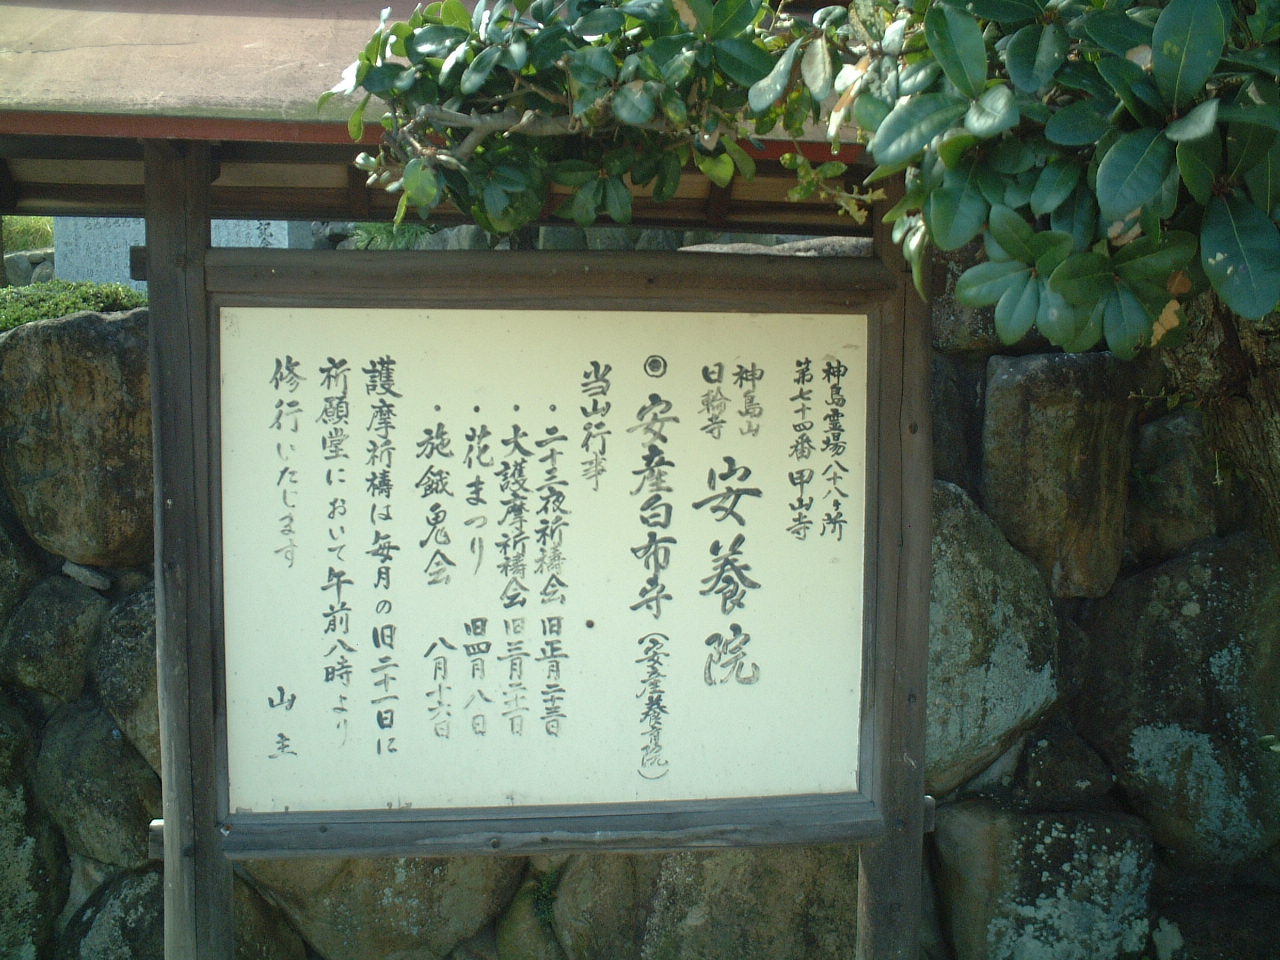 神島霊場八十八ヶ所
第七十四番 甲山寺
神島山
日輪寺
安養院
◎安産白布寺(安産養育院)
当山行事
・二十三夜祈禱会 旧正月二十三日
・大護摩祈禱会 旧三月二十一日
・花まつり 旧四月八日
・施餓鬼会 八月十六日
護摩祈禱は毎月の旧二十一日に
祈願堂において午前八時より
修行いたします
山主
記念